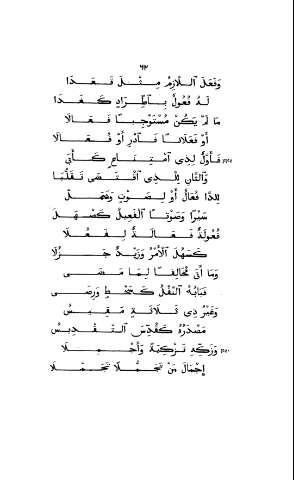 ٦٢
وَفَعَلَ ٱللَّازِمُ مِثْلَ قَعَدَا
لَهُ فُعُولٌ بِٱطِّرَادٍ كَغَدَا
مَا لَمْ يَكُنْ مُسْتَوْجِبًا فِعَالَا
أَوْ فَعَلَانًا فَٱدْرِ أَوْ فُعَالَا
فَأَوَّلٌ لِذِي ٱمْتِنَاعٍ كَأَبَى
وَٱلثَّانِ لِلَّذِي ٱقْتَضَى تَقَلُّبَا
لِلدَّا فُعَالٌ أَوْ لِصَوْتٍ وَشَمَلْ
سَيْرًا وَصَوْتًا ٱلْفَعِيلُ كَصَهَلْ
فُعُولَةٌ فَعَالَةٌ لِفَعُلَا
كَسَهُلَ ٱلْأَمْرُ وَزَيْدٌ جَزُلَا
وَمَا أَتَى مُخَالِفًا لِمَا مَضَى
فَبَابُهُ ٱلنَّقْلُ كَسُخْطٍ وَرِضَى
وَغَيْرُ ذِي ثَلَاثَةٍ مَقِيسُ
مَصْدَرُهُ كَقُدِّسَ ٱلتَّقْدِيسُ
وَزَكِّهِ تَزْكِيَةً وَأَجْمِلَا
إِجْمَالَ مَنْ تَجَمُّلًا تَجَمَّلَا